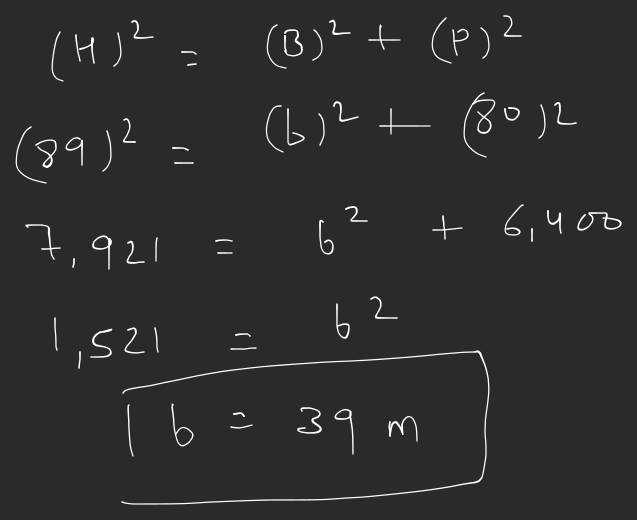 (H)² = (B)² + (P)²
(89)² = (b)² + (80)²
7,921 = b² + 6,400
1,521 = b²
b = 39 m